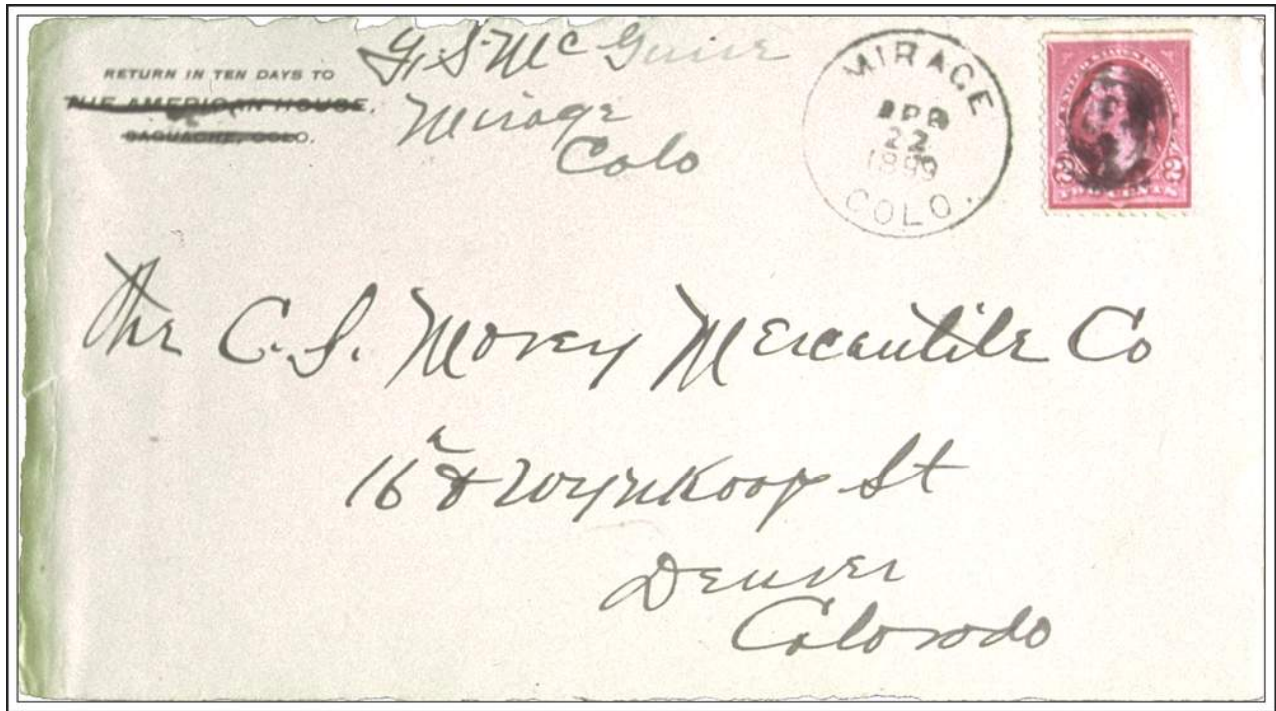 RETURN IN TEN DAYS TO
THE AMERICAN HOUSE,
SAGUACHE, COLO.
G. S. McGuire
Mirage
Colo
MIRAGE
APR
22
1899
COLO.
2 2
TWO CENTS
The C. S. Morey Mercantile Co
16th & Wynkoop St
Denver
Colorado